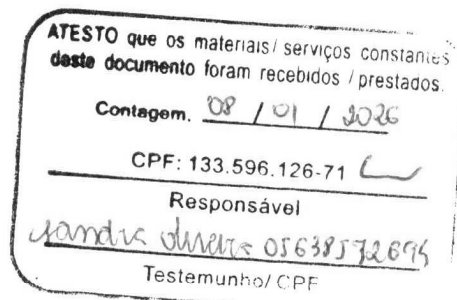 ATESTO que os materiais/ serviços constantes
deste documento foram recebidos / prestados.
Contagem, 08 / 01 / 2026
CPF: 133.596.126-71
Responsável
05638572694
Testemunho/ CPF